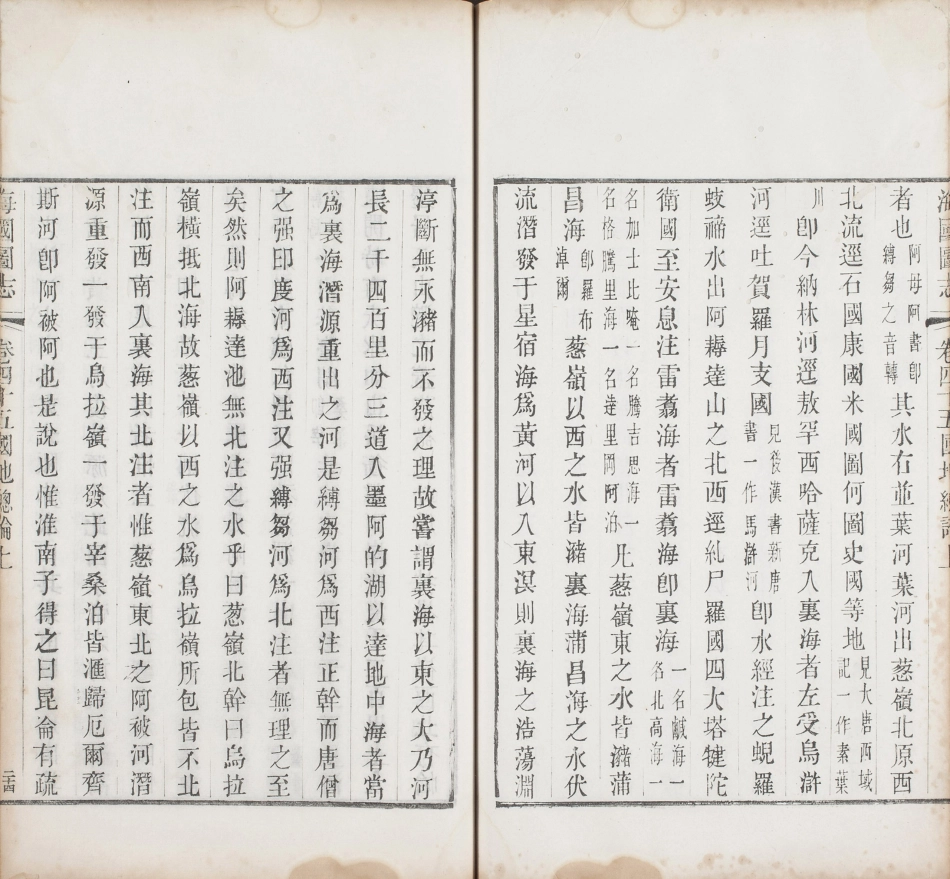 海國圖志 卷四十五國地總論上
者也阿母阿書卽縛芻之音轉其水右並葉河葉河出葱嶺北原西
北流逕石國康國米國圖何圖史國等地見大唐西域記一作素葉
川卽今納林河逕敖罕西哈薩克入裏海者左受烏滸
河逕吐賀羅月支國見後漢書新唐書一作馬滸河卽水經注之蜺羅
蚑禘水出阿耨達山之北西逕糺尸羅國四大塔犍陀
衛國至安息注雷翥海者雷翥海卽裏海一名鹹海一名北高海一
名加士比唵一名騰吉思海一名格騰里海一名達里岡阿泊凡葱嶺東之水皆瀦蒲
昌海卽羅布淖爾葱嶺以西之水皆瀦裏海蒲昌海之水伏
流潛發于星宿海爲黃河以入東溟則裏海之浩蕩淵
渟斷無永瀦而不發之理故嘗謂裏海以東之大乃河
長二千四百里分三道入墨阿的湖以達地中海者當
爲裏海潛源重出之河是縛芻河爲西注正幹而唐僧
之强印度河爲西注又强縛芻河爲北注者無理之至
矣然則阿耨達池無北注之水乎曰葱嶺北幹曰烏拉
嶺橫抵北海故葱嶺以西之水爲烏拉嶺所包皆不北
注而西南入裏海其北注者惟葱嶺東北之阿被河潛
源重發一發于烏拉嶺一發于宰桑泊皆滙歸厄爾齊
斯河卽阿被阿也是說也惟淮南子得之曰昆侖有疏
海國圖志 卷四十五國地總論上 二十四